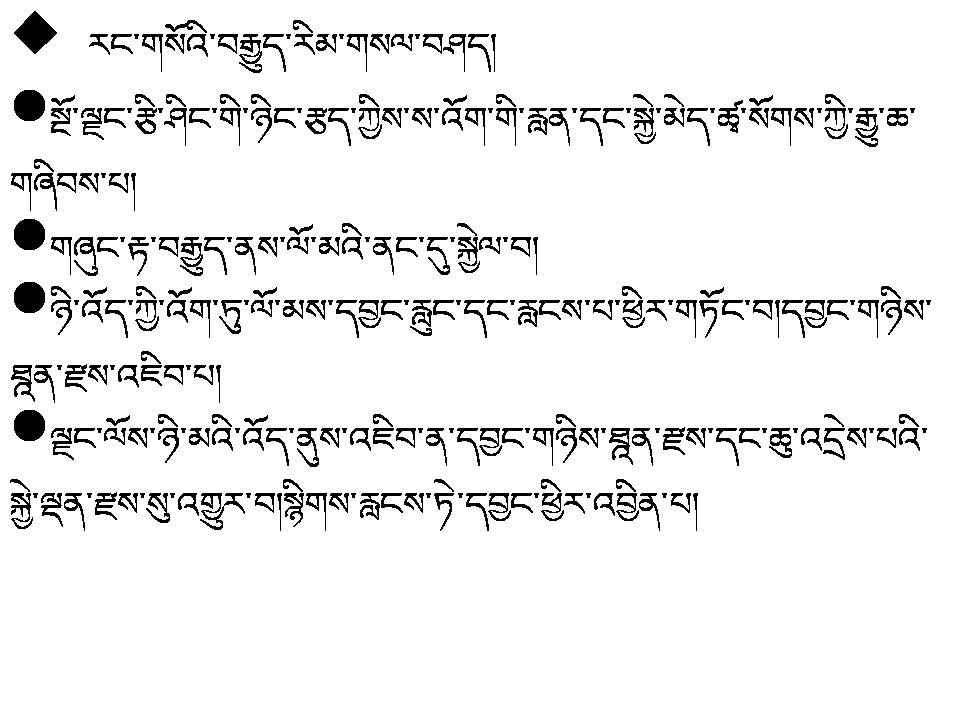 ◆ རང་གསོའི་བརྒྱུད་རིམ་གསལ་བཤད།
●སྔོ་ལྗང་རྩི་ཤིང་གི་ཉིང་རྩད་ཀྱིས་ས་འོག་གི་རླན་དང་སྐྱེ་མེད་ཚྭ་སོགས་ཀྱི་རྒྱུ་ཆ་
གཞིབས་པ།
●གཞུང་རྟ་བརྒྱུད་ནས་ལོ་མའི་ནང་དུ་སྐྱེལ་བ།
●ཉི་འོད་ཀྱི་འོག་ཏུ་ལོ་མས་དབྱང་རླུང་དང་རླངས་པ་ཕྱིར་གཏོང་བ།དབྱང་གཉིས་
ཐྭན་རྫས་འཇིབ་པ།
●ལྗང་ལོས་ཉི་མའི་འོད་ནུས་འཇིབ་ན་དབྱང་གཉིས་ཐྭན་རྫས་དང་ཆུ་འདྲེས་པའི་
སྐྱེ་ལྡན་རྫས་སུ་འགྱུར་བ།སྙིགས་རླངས་ཏེ་དབྱང་ཕྱིར་འབྱིན་པ།